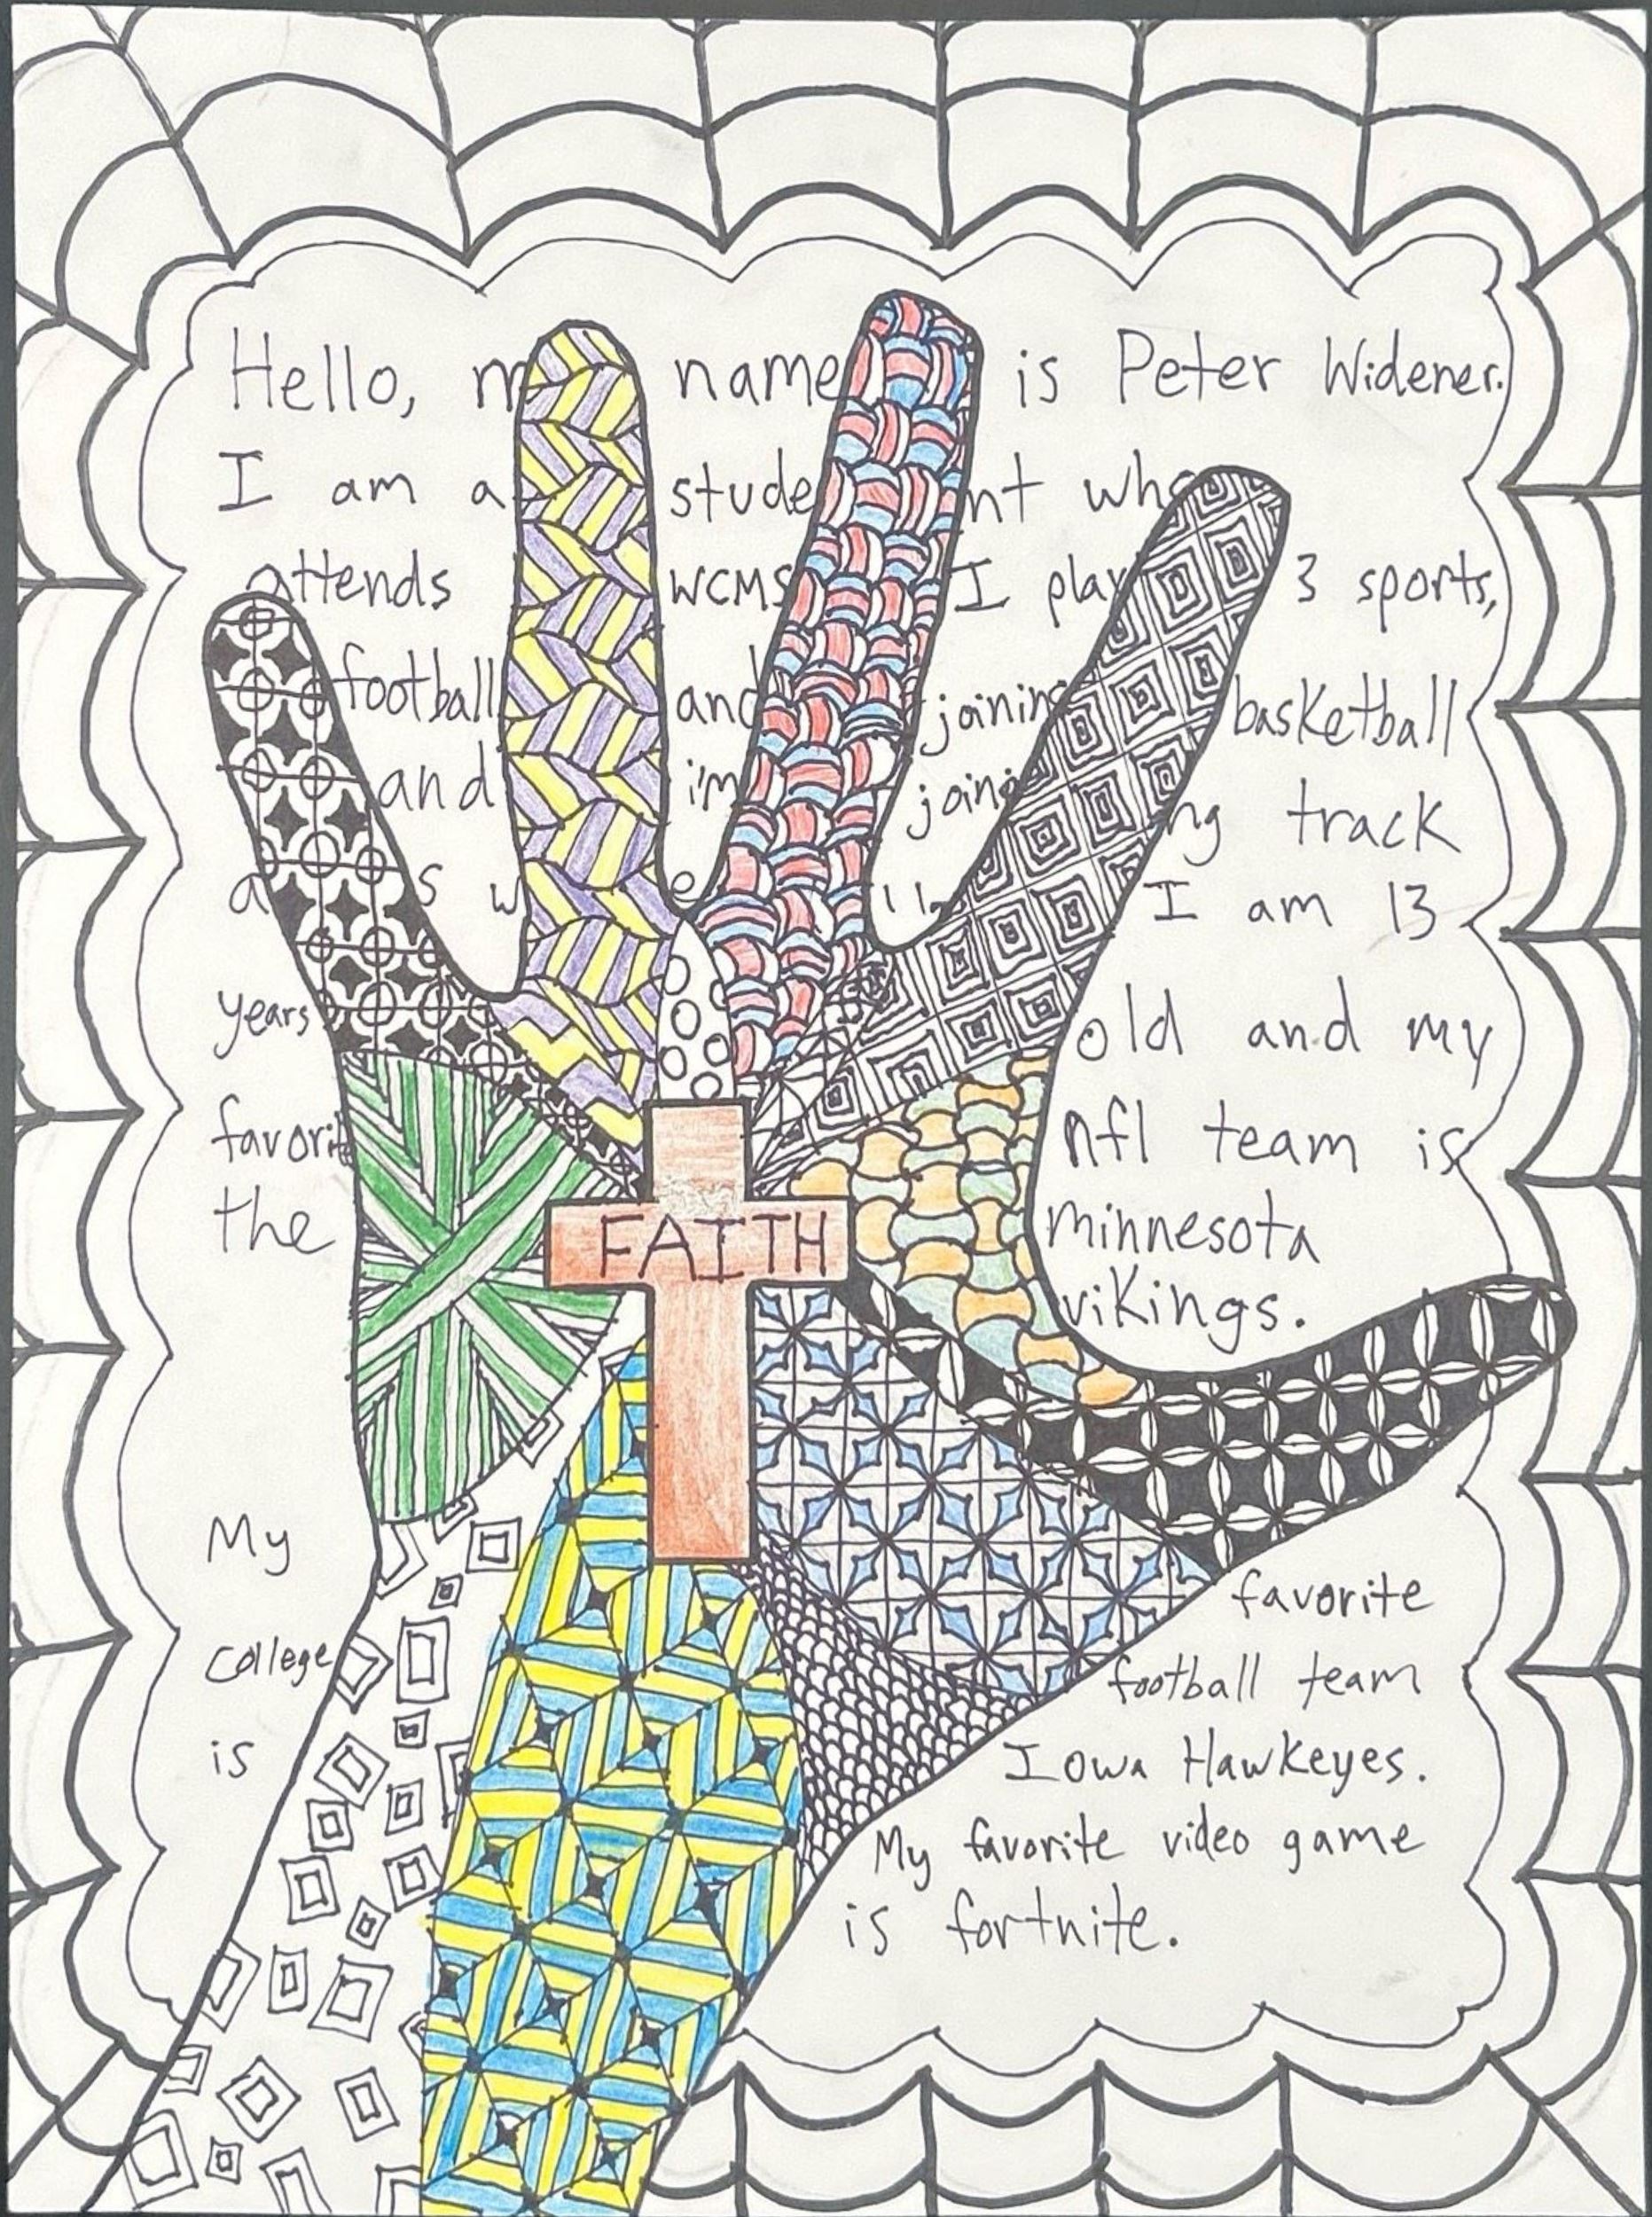 Hello, m name is Peter Widener.
I am a student who
attends WCMS I play 3 sports,
football and joining basketball
and i'm joining track
as well I am 13
years old and my
favorit nfl team is
the minnesota
vikings.
FAITH
My favorite
college football team
is Iowa Hawkeyes.
My favorite video game
is fortnite.